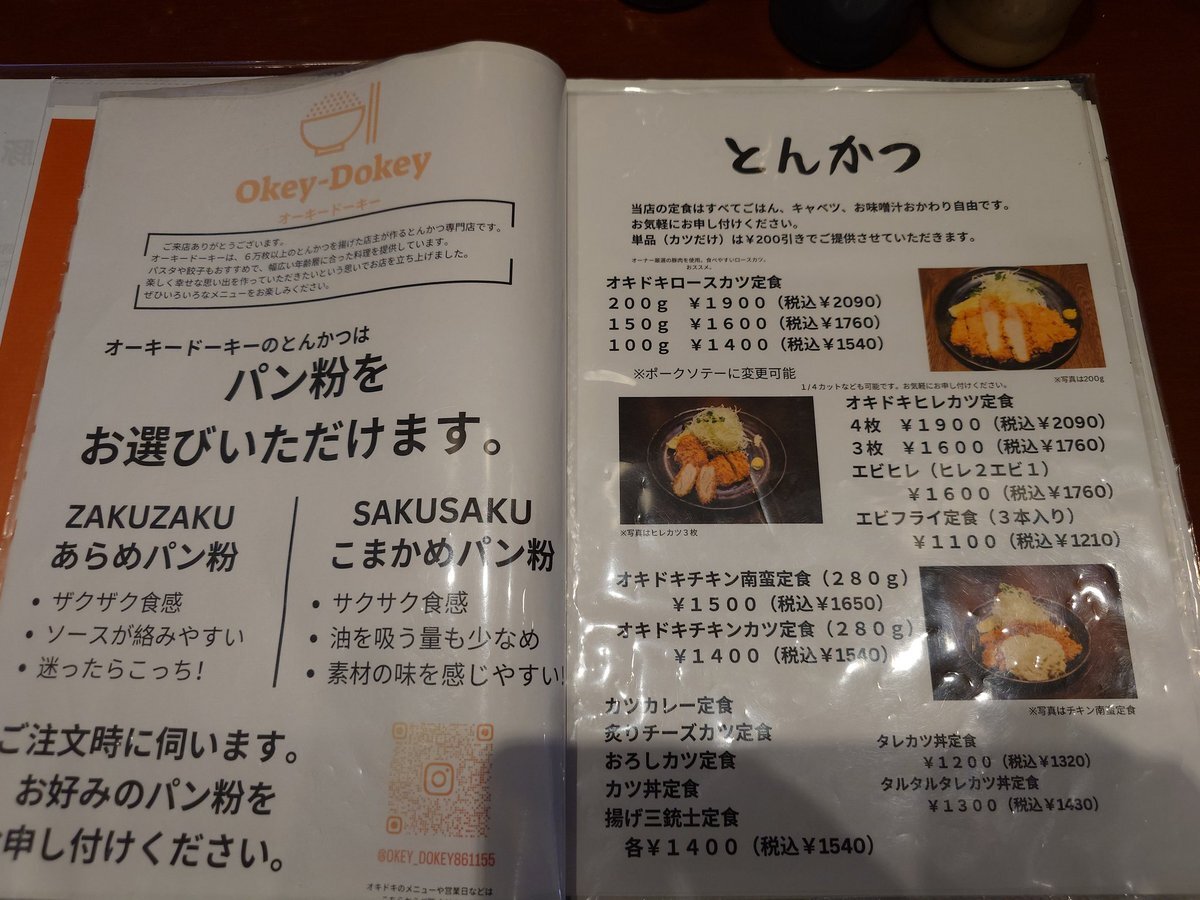 Okey-Dokey
オーキードーキー
ご来店ありがとうございます。
オーキードーキーは、6万枚以上のとんかつを揚げた店主が作るとんかつ専門店です。
パスタや餃子もおすすめで、幅広い年齢層に合った料理を提供しています。
楽しく幸せな思い出を作っていただきたいという思いでお店を立ち上げました。
ぜひいろいろなメニューをお楽しみください。
オーキードーキーのとんかつは
パン粉を
お選びいただけます。
ZAKUZAKU
あらめパン粉
• ザクザク食感
• ソースが絡みやすい
• 迷ったらこっち!
SAKUSAKU
こまかめパン粉
• サクサク食感
• 油を吸う量も少なめ
• 素材の味を感じやすい!
ご注文時に伺います。
お好みのパン粉を
申し付けください。
@OKEY_DOKEY861155
オキドキのメニューや営業日などは
とんかつ
当店の定食はすべてごはん、キャベツ、お味噌汁おかわり自由です。
お気軽にお申し付けください。
単品(カツだけ)は¥200引きでご提供させていただきます。
オーナー厳選の豚肉を使用。食べやすいロースカツ。
おススメ。
オキドキロースカツ定食
200g ¥1900(税込¥2090)
150g ¥1600(税込¥1760)
100g ¥1400(税込¥1540)
※ポークソテーに変更可能
※写真は200g
1/4カットなども可能です。お気軽にお申し付けください。
オキドキヒレカツ定食
4枚 ¥1900(税込¥2090)
3枚 ¥1600(税込¥1760)
エビヒレ(ヒレ2エビ1)
¥1600(税込¥1760)
エビフライ定食(3本入り)
¥1100(税込¥1210)
※写真はヒレカツ3枚
オキドキチキン南蛮定食(280g)
¥1500(税込¥1650)
オキドキチキンカツ定食(280g)
¥1400(税込¥1540)
※写真はチキン南蛮定食
カツカレー定食
炙りチーズカツ定食
おろしカツ定食
カツ丼定食
揚げ三銃士定食
各¥1400(税込¥1540)
タレカツ丼定食
¥1200(税込¥1320)
タルタルタレカツ丼定食
¥1300(税込¥1430)